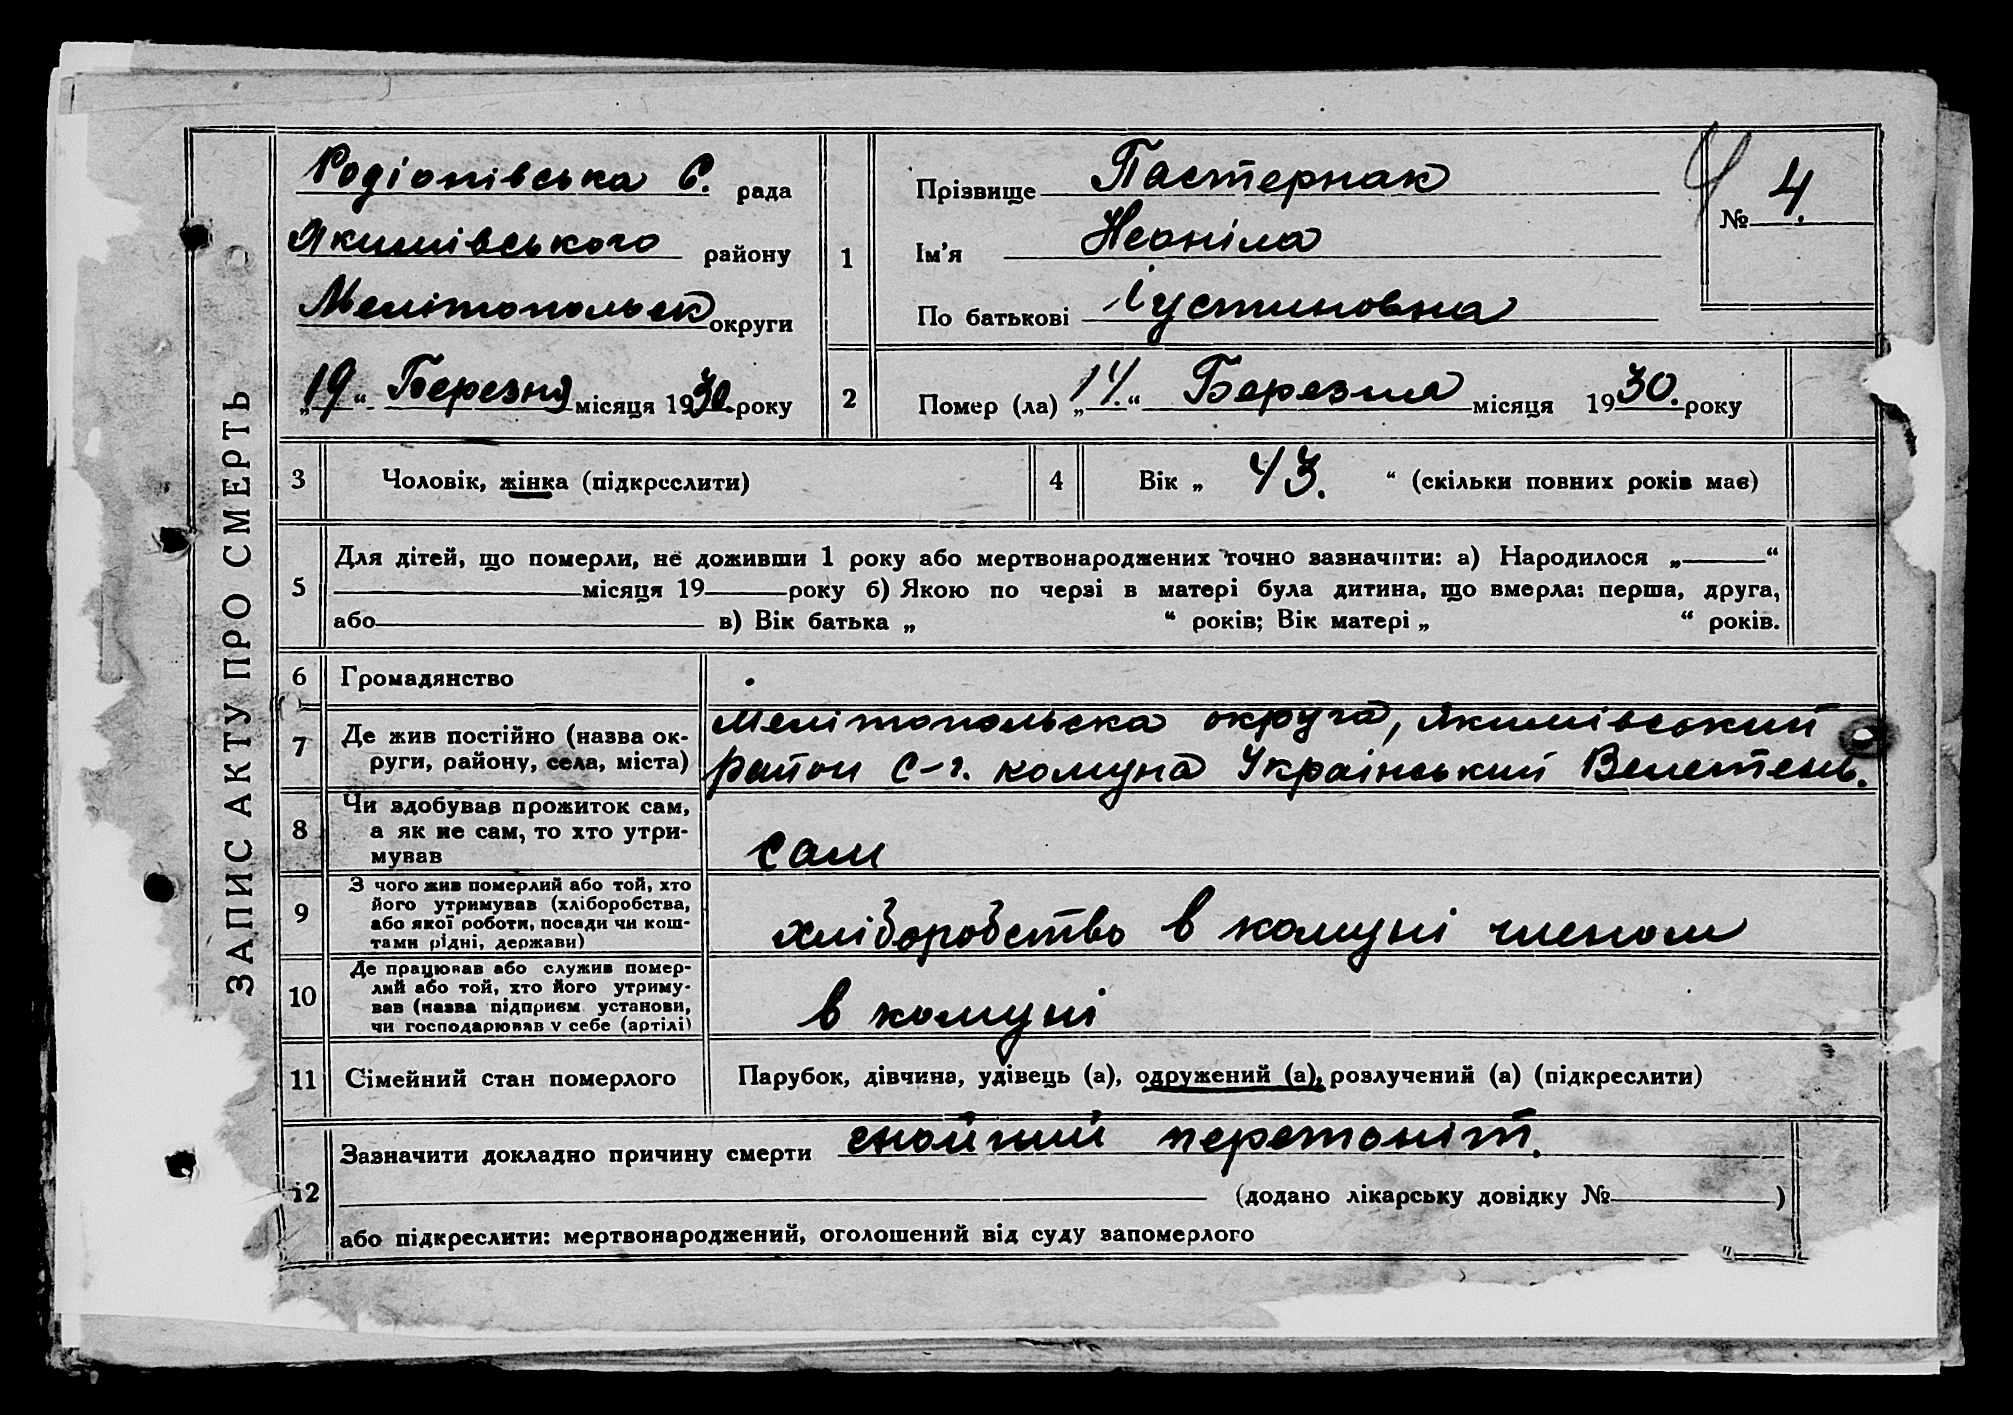 ЗАПИС АКТУ ПРО СМЕРТЬ
Родіонівська С. рада
Якимівського району
Мелітопольськ округи
„19“ Березня місяця 1930 року
1
Прізвище Пастернак
Ім'я Неоніла
По батькові Іустиновна
№ 4.
2
Помер (ла) „14.“ Березня місяця 1930. року
3 Чоловік, жінка (підкреслити)
4 Вік „ 43. “ (скільки повних років має)
5
Для дітей, що померли, не доживши 1 року або мертвонароджених точно зазначити: а) Народилося „ “
місяця 19 року б) Якою по черзі в матері була дитина, що вмерла: перша, друга,
або в) Вік батька „ “ років; Вік матері „ “ років.
6 Громадянство
7 Де жив постійно (назва ок-
руги, району, села, міста)
Мелітопольська округа, Якимівський
район С-г. комуна Український Велетень.
8 Чи здобував прожиток сам,
а як не сам, то хто утри-
мував
сам
9 З чого жив померлий або той, хто
його утримував (хліборобства,
або якої роботи, посади чи кош-
тами рідні, держави)
хліборобство в комуні членом
10 Де працював або служив помер-
лий або той, хто його утриму-
вав (назва підприєм. установи,
чи господарював у себе (артілі)
в комуні
11 Сімейний стан померлого
Парубок, дівчина, удівець (а), одружений (а), розлучений (а) (підкреслити)
12
Зазначити докладно причину смерти гнойний перетоніт.
(додано лікарську довідку № )
або підкреслити: мертвонароджений, оголошений від суду запомерлого